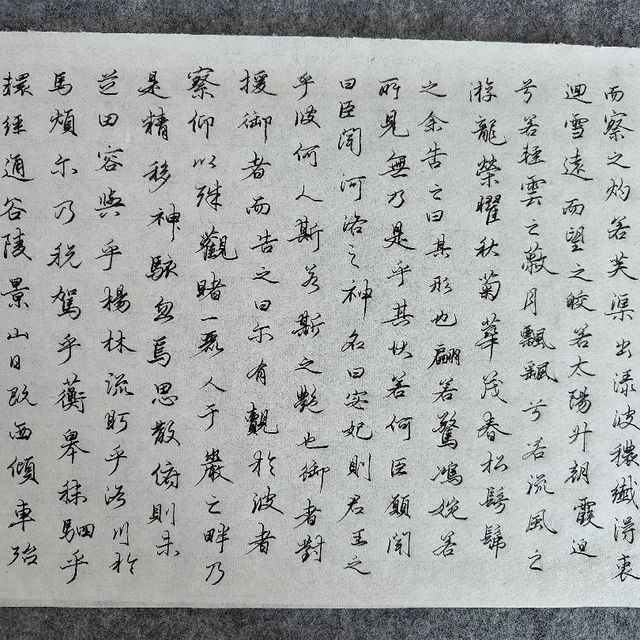 而察之灼若芙渠出渌波穠纖得衷
迴雪遠而望之皎若太陽升朝霞迫
兮若輕雲之蔽月飄飄兮若流風之
游龍榮曜秋菊華茂春松髣髴
之余告之曰其形也翩若驚鴻婉若
所見無乃是乎其狀若何臣願聞
曰臣聞河洛之神名曰宓妃則君王之
乎彼何人斯若斯之艷也御者對
援御者而告之曰尔有覿於彼者
察仰以殊觀睹一麗人于巖之畔乃
是精移神駭忽焉思散俯則未
芝田容與乎楊林流眄乎洛川於
馬煩尔乃税駕乎蘅皋秣駟乎
轘經通谷陵景山日既西傾車殆